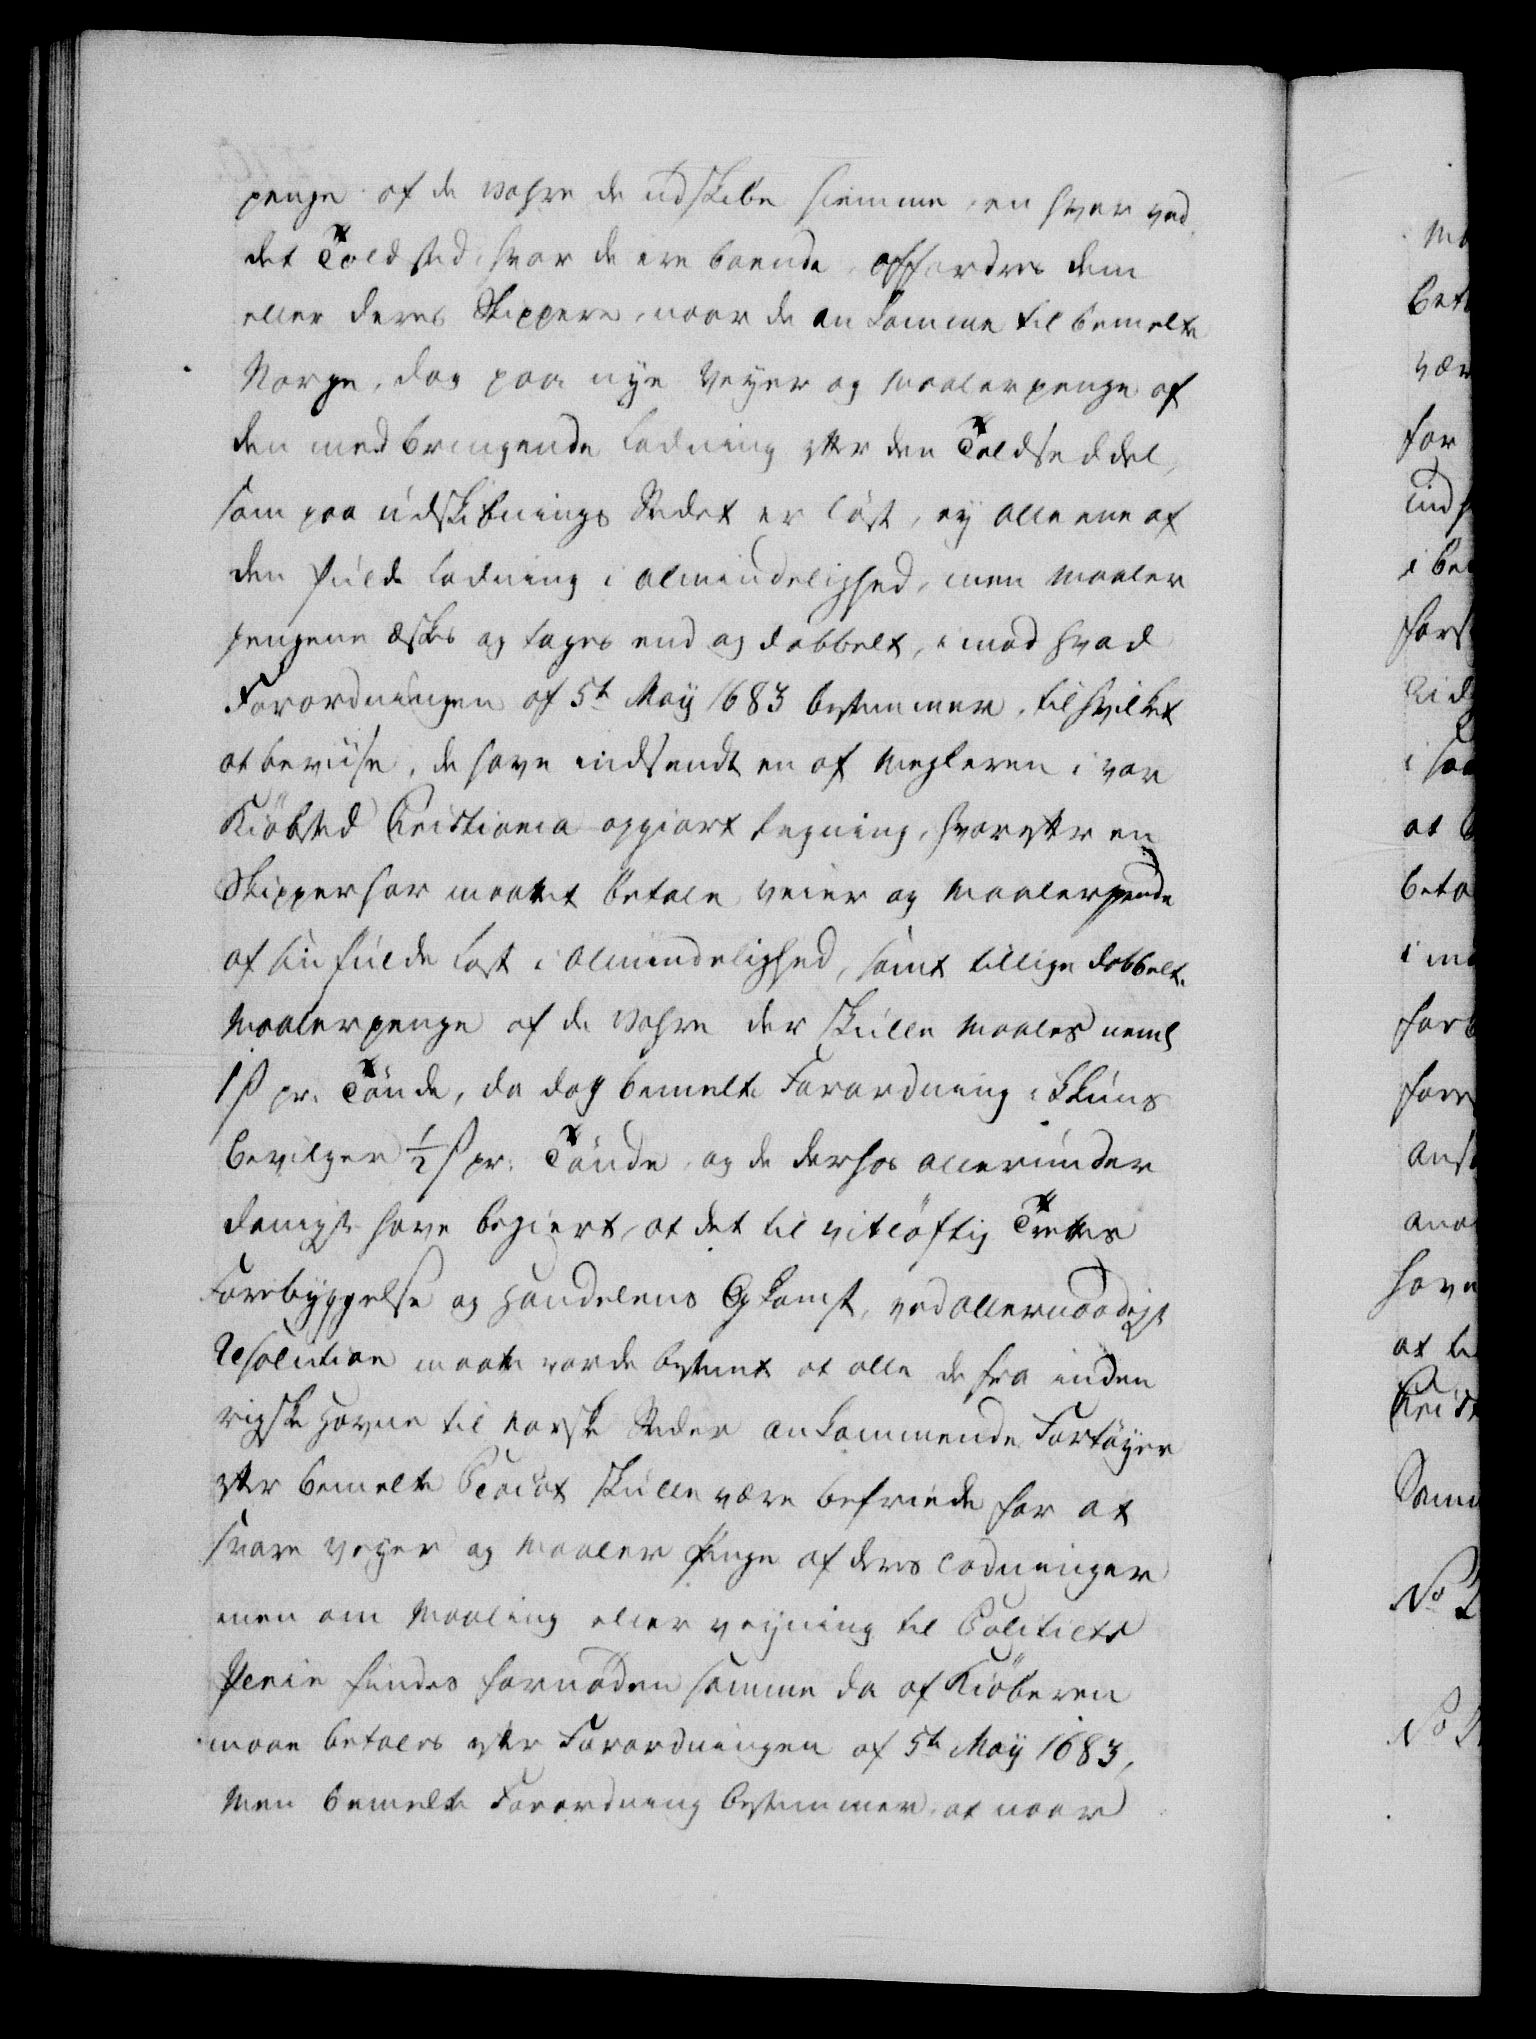 penge af de Vahre de udskibe hiemme, en hver ved
det Toldsted, hvor de ere boende, affordres dem
eller deres Skippere, naar de ankomme til bemelte
Norge, dog paa nye Veyer og Maalerpenge af
den medbringende Ladning efter den Toldseddel,
som paa Udskibnings Stedet er löst, ey alleene af
den fulde Ladning i Almindelighed, men Maaler
pengene æskes og tages end og dobbelt, imod hvad
Forordningen af 5t May 1683 bestemmer, til hvilket
at beviise, de have indsendt en af Megleren i vor
Kiöbsted Christiania opgiort Regning, hvorefter en
Skipper har maattet betale Veier og Maalerpenge
af sin fulde Last i Almindelighed, samt tillige dobbelt
Maalerpenge af de Vahre der skulle maales neml
1 ß pr. Tönde, da dog bemelte Forordning ikkuns
bevilger ½ ß pr. Tönde, og de derhos allerunder
danigst have begiert, at det til vitlöftig Trettes
Forebyggelse og Handelens Opkomst, ved allernaadigst
Resolution maatte vorde bestemt at alle de fra inden
rigske Havne til Norske Steder ankommende Fartöyer
efter bemelte Placat skulle være befriede for at
svare Veyer og Maaler penge af deres Ladninger
men om Maaling eller Veyning til Politiets
Pleie findes fornöden samme da af Kiöberen
maae betales efter Forordningen af 5te May 1683,
Men bemelte Forordning bestemmer, at naar